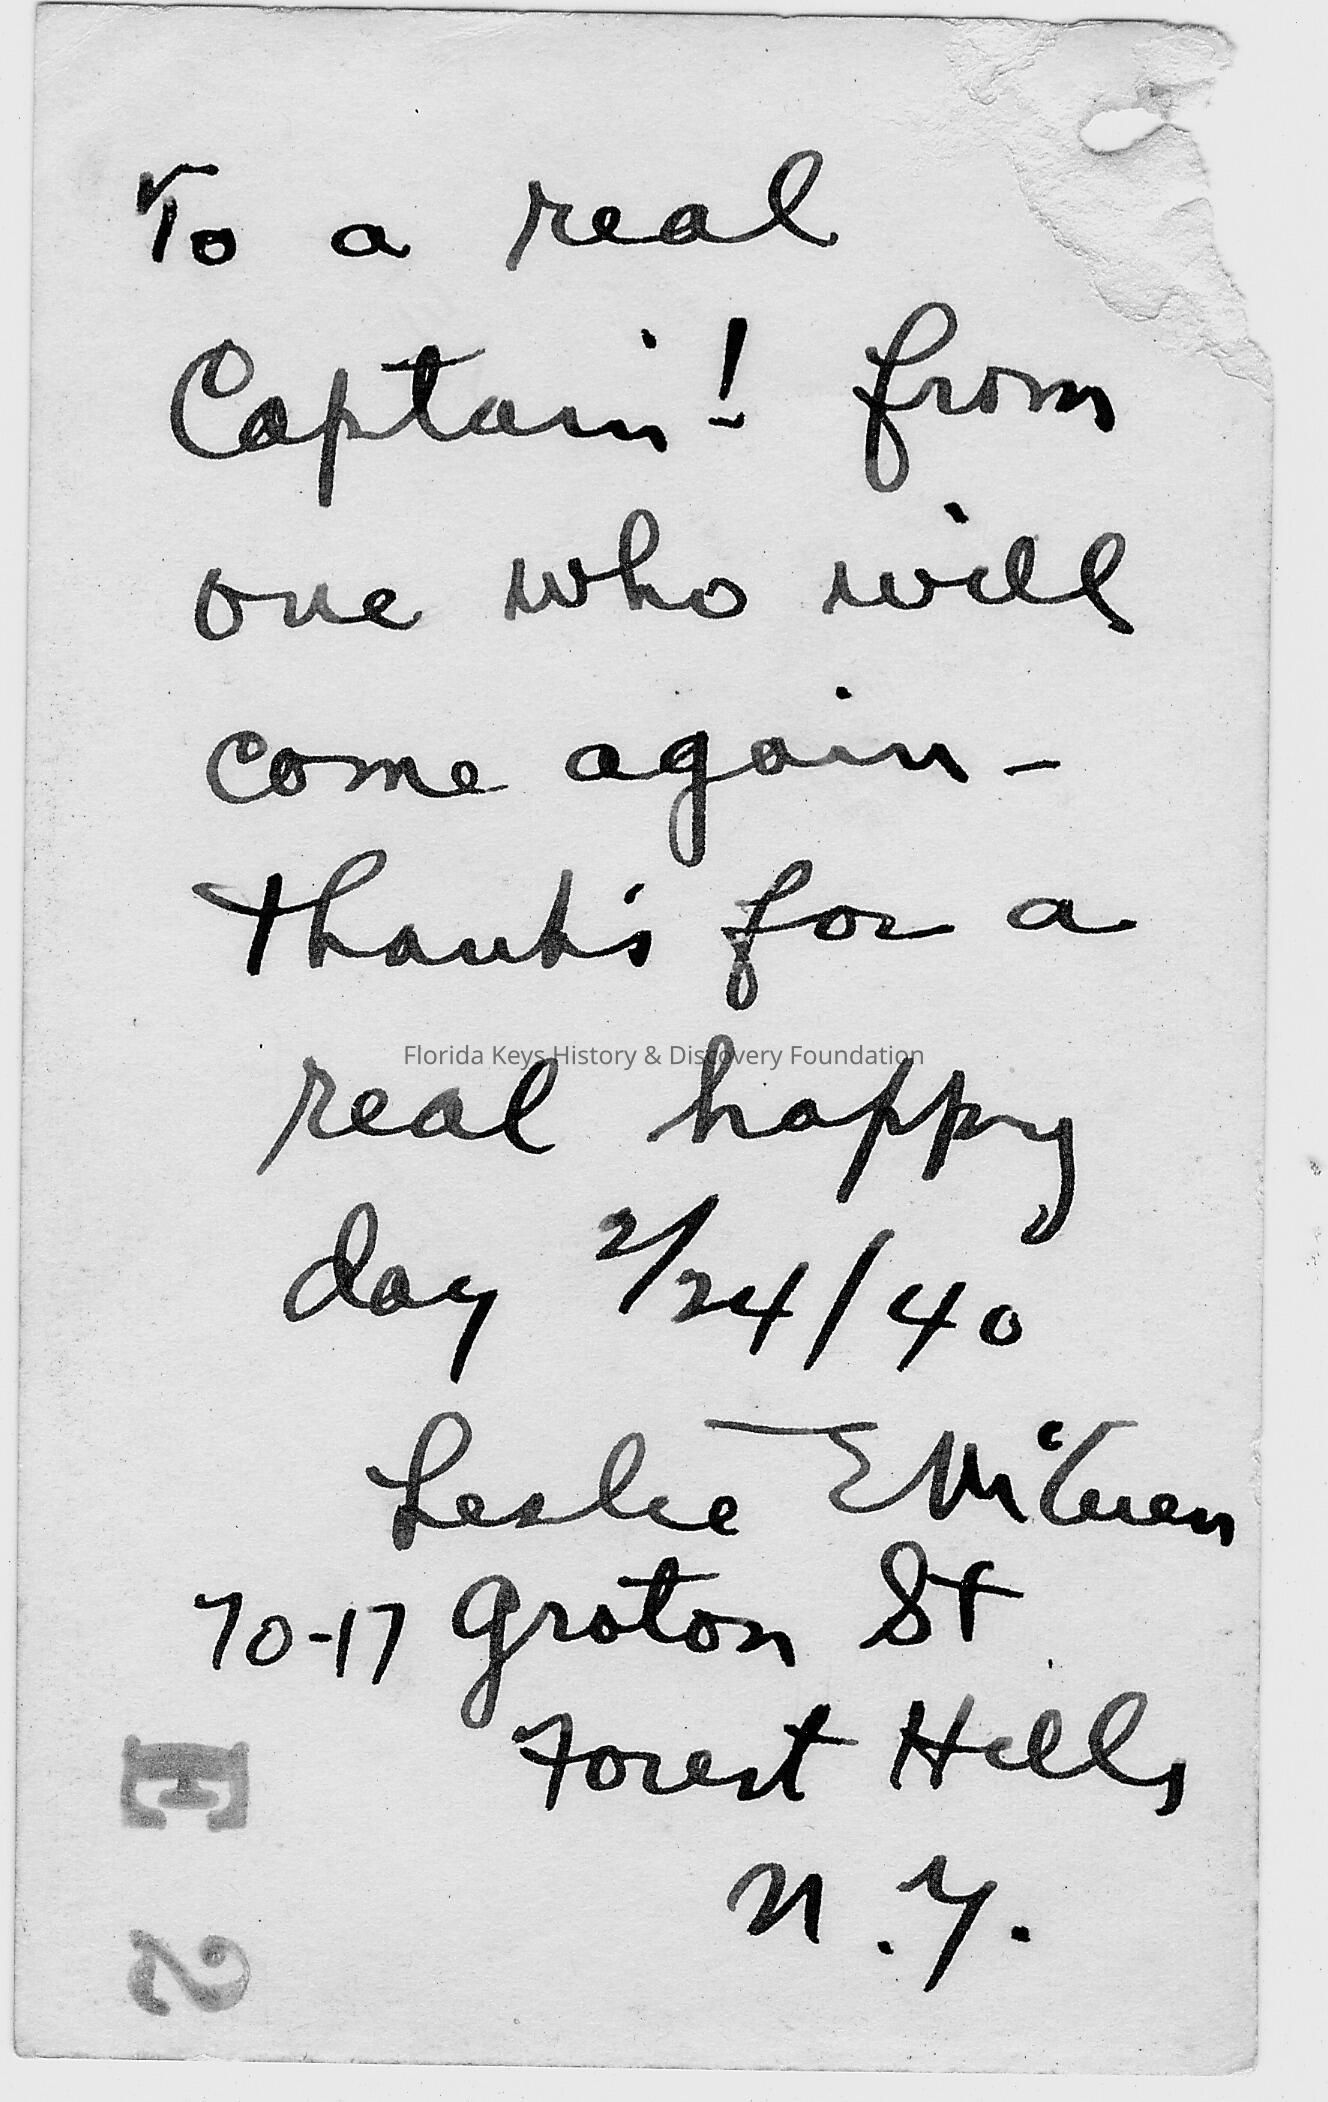 To a real
Captain! from
one who will
come again -
thanks for a
Florida Keys History & Discovery Foundation
real happy
day 2/24/40
Leslie E
70-17 Groton St
Forest Hills
N.Y.
E 2